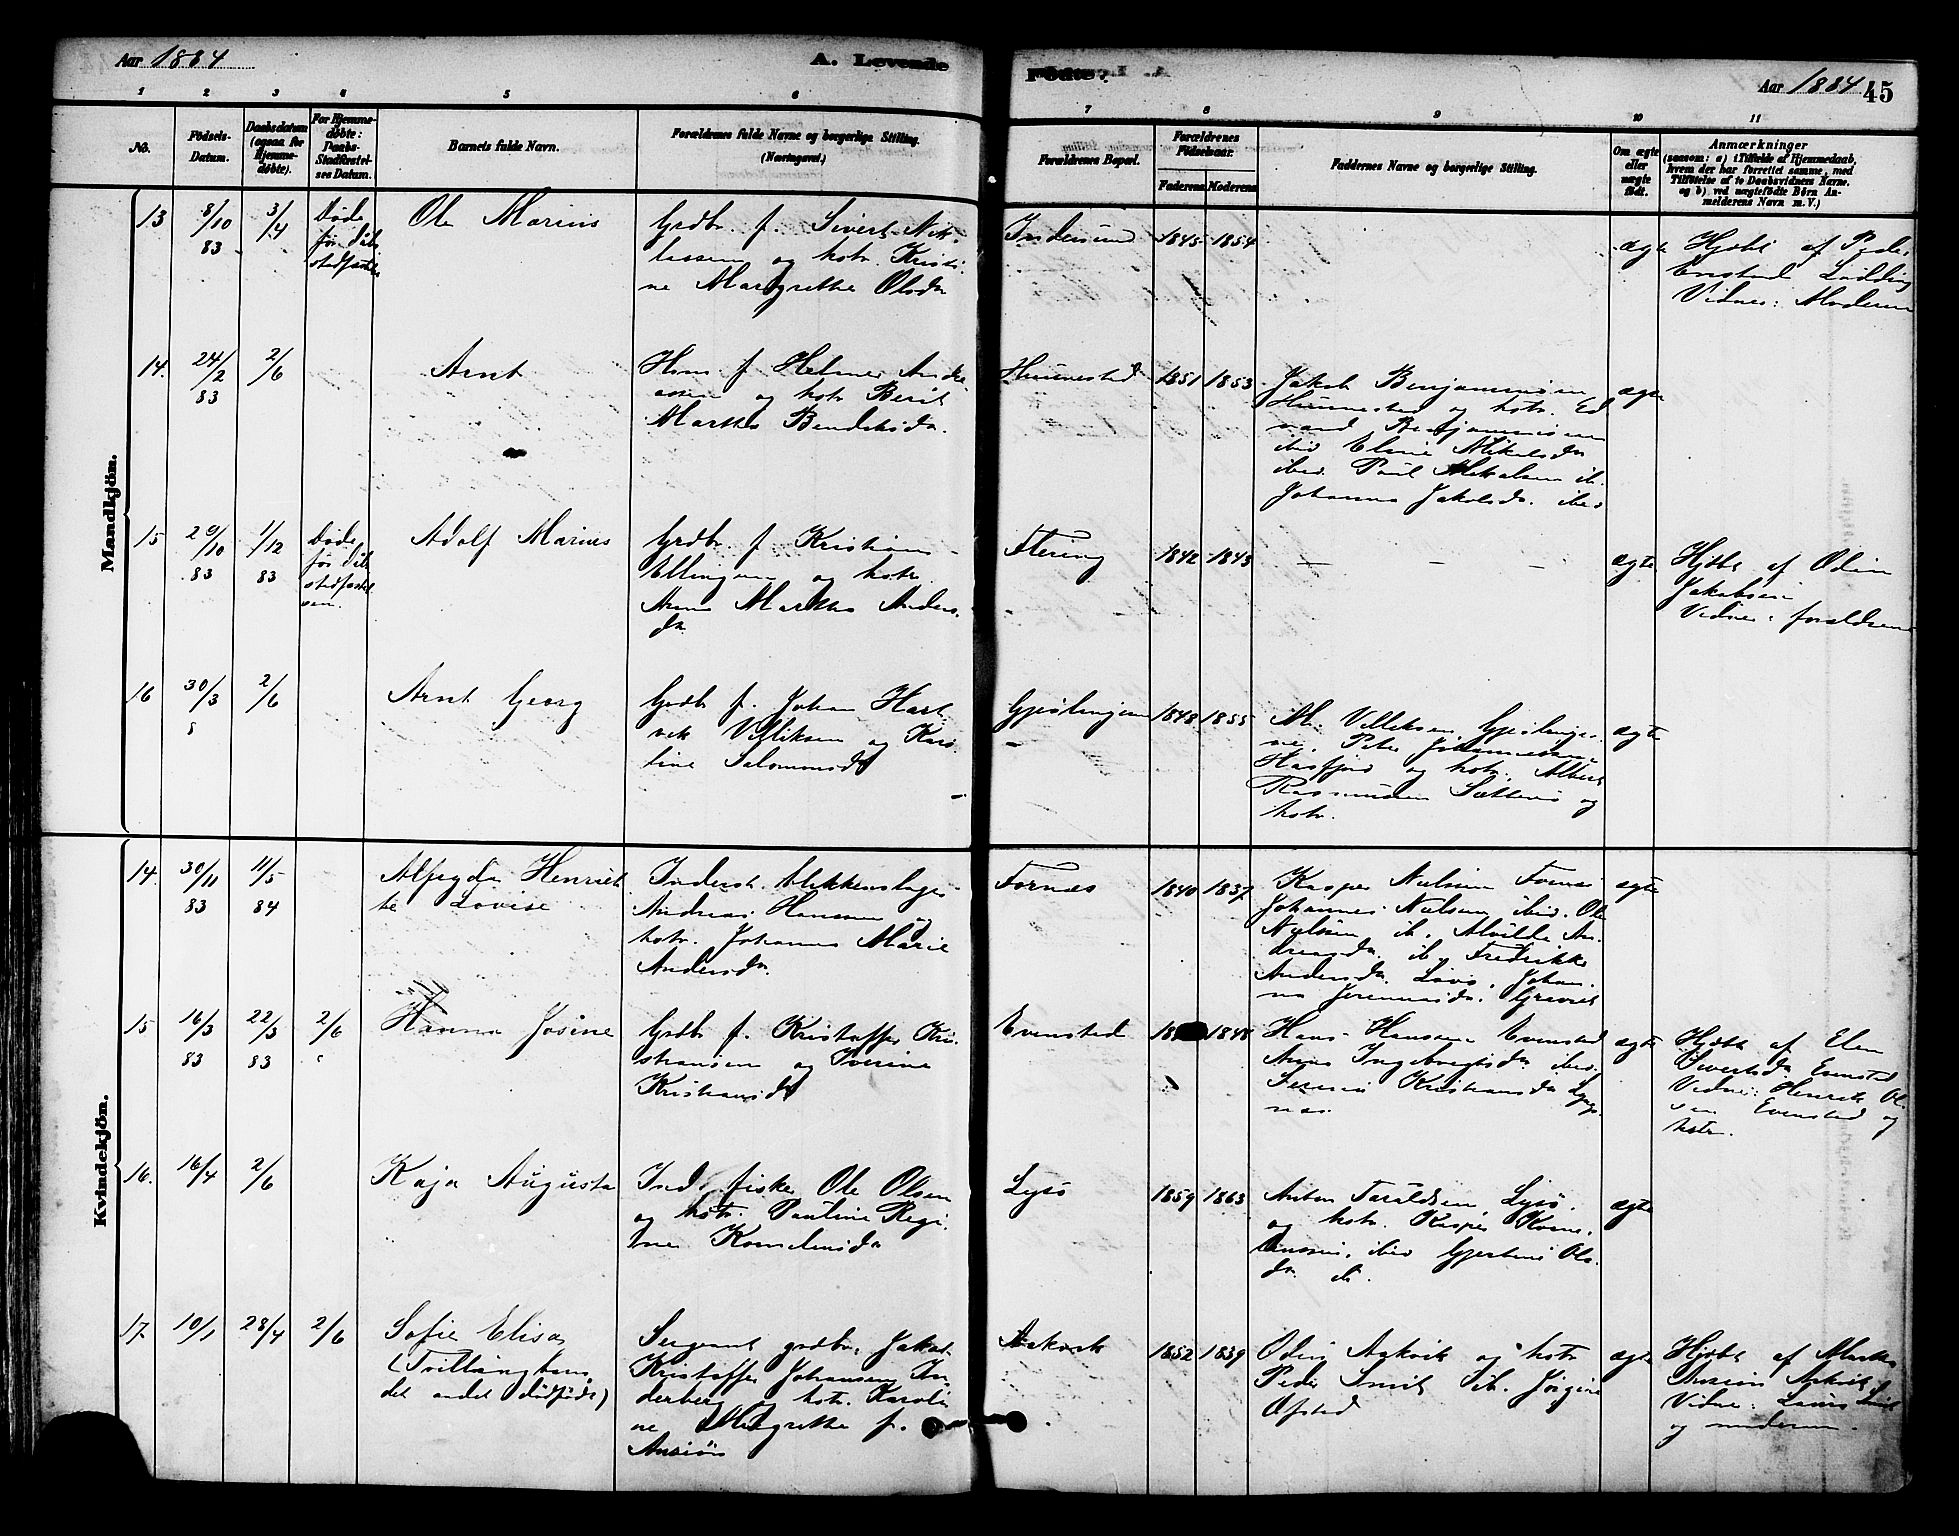 Aar 1884
A. Levende
Fødte.
Aar 1884 45
1 2 3 4 5 6 7 8 9 10 11
No.
Födsels-
Datum.
Daabsdatum
(ogsaa for
Hjemme-
døbte).
For Hjemme-
døbte:
Daabs-
Stadfæstel-
ses Datum.
Barnets fulde Navn.
Forældrenes fulde Navne og borgerlige Stilling.
(Næringsvei.)
Forældrenes Bopæl.
Forældrenes
Födselsaar.
Faderens. Moderens.
Faddernes Navne og borgerlige Stilling.
Om ægte
eller
uægte
født.
Anmærkninger
(saasom: a) i Tilfælde af Hjemmedaab,
hvem der har forrettet samme, med
Tilföielse af to Daabsvidners Navne,
og b) ved uægtefödte Börn An-
melderens Navn m. V.)
Mandkjön.
13 8/10 83 3/4
Døde
før dåbs
Ole Marius
Grdbr. f. Sivert Nik-
lassen og hstr. Kristi-
ne Margrethe Olsdr
Indersund 1845 1854
ægte
Hjdbt af Peder
Evensted
Vidner: Moderen
14. 24/2 83 2/6
Arnt
f. Helmer Andre
assen og hstr Berit
Marthe Bendeksdr.
Hunnestad 1851 1853
Jakob Benjaminsen
Hunnestad og hstr. Ed
vard Benjaminsen
ibid Eline Mikalsdr
ibid. Paul Mikalsen ib.
Johanna Jakobsdr. ibid
ægte
15 29/10 83 1/12 83
Døde
før dåb
stadfæstel
sen.
Adolf Marius
Grdbr. f. Kristian
Ellingsen og hstr.
Anne Martha Anders-
dr.
Flering 1842 1843
- - -
ægte
Hjdbt af Odin
Jakobsen
Vidner: forældrene
16 30/3 2/6
Arnt Georg
Grdbr f. Johan Hart
vik Villiksen og Karo
line Salomonsdr
Gjeslingen 1848 1855
M. Villiksen, Gjeslinge-
ne. Peter Johannessen
Hasfjord og hstr. Albert
Rasmussen Sætterø og
hstr.
ægte
Kvindekjön.
14. 30/11 83 11/5 84
Alfygda Henriet
te Lovise
Inderst. blikkenslager
Andreas Hansen og
hstr. Johanna Marie
Andersdr.
Fornes 1840 1837
Kasper Nielsen Fornes
Johannes Nielsen ibid. Ole
Nielsen ib. Alvilde An-
dreasdr. ib. Fredrikke
Andersdr. Johan-
na
ægte
15 16/3 83 22/3 83 2/6
Hanna Josine
Grdbr f. Kristoffer Kri-
stiansen og Iverine
Kristiansdr
Evensted 18 1848
Hans Hansen Evensted
Anne Ingebrigtsdr ibid.
Kristiansdr
ægte
Hjdbt af Elen
Sivertsdr Evensted
Vidner: Henrik Ol-
sen Evensted og
hstr.
16. 16/4 2/6
Kaja Augusta
Ind. fisker Ole Olsen
og hstr. Pauline Regi-
ne Kornelinsdr
Lysø 1859 1863
Anton Taraldsen Lysø.
og hstr. Kasper Korne-
liussen, ibid Gjertine Ols-
dr ib.
ægte
17. 10/1 28/4 2/6
Sofie Elisa
(Tvillingbarn
det andet dødfødt)
Sergeant grdbr. Jakob
Kristoffer Johansen In-
derberg og hstr. Karoli
ne Margrethe f.
Ansiøn
Aakvik 1852 1839
Odin Aakvik og hstr
Peder Smit ib. Jørgine
Ofsted
ægte
Hjdbt af Marthe
Aakvik
Vidner: Smit
og moderen.